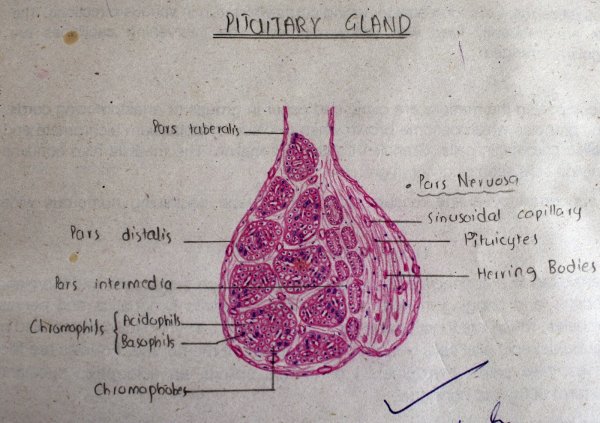 PITUITARY GLAND
Pars tuberalis
• Pars Nervosa
Sinusoidal capillary
Pars distalis
Pituicytes
Herring Bodies
Pars intermedia
Chromophils { Acidophils
Basophils
Chromophobes